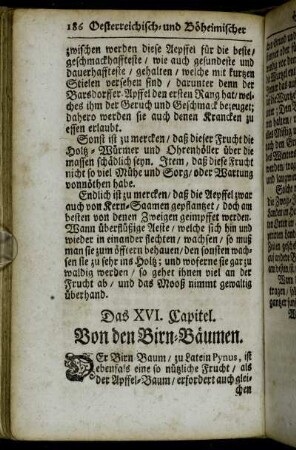 186 Oesterreichisch- und Böheimischer
zwischen werden diese Aepffel für die beste/
geschmackhaffteste / wie auch gesundeste und
dauerhaffteste / gehalten / welche mit kurtzen
Stielen versehen sind / darunter denn der
Barsdorffer Apffel den ersten Rang hat / welches
ihm der Geruch und Geschmack bezeuget;
dahero werden sie auch denen Krancken zu
essen erlaubt.
Sonst ist zu mercken / daß dieser Frucht die
Holtz-Würmer und Ohrenhöller über die
massen schädlich seyn. Item, daß diese Frucht
nicht so viel Mühe und Sorg / oder Wartung
vonnöthen habe.
Endlich ist zu mercken / daß die Aepffel zwar
auch von Kern-Saamen gepflantzet / doch am
besten von denen Zweigen geimpffet werden.
Wann überflüßige Aeste / welche sich hin und
wieder in einander flechten / wachsen / so muß
man sie zum öfftern behauen / den sonsten wachsen
sie zu sehr ins Holtz: und woferne sie gar zu
waldig werden / so gehet ihnen viel an der
Frucht ab / und das Mooß nimmt gewaltig
überhand.
Das XVI. Capitel.
Von den Birn-Bäumen.
DEr Birn Baum / zu Latein Pyrus, ist
ebenfals eine so nützliche Frucht / als
der Apffel-Baum / erfordert auch gleichen